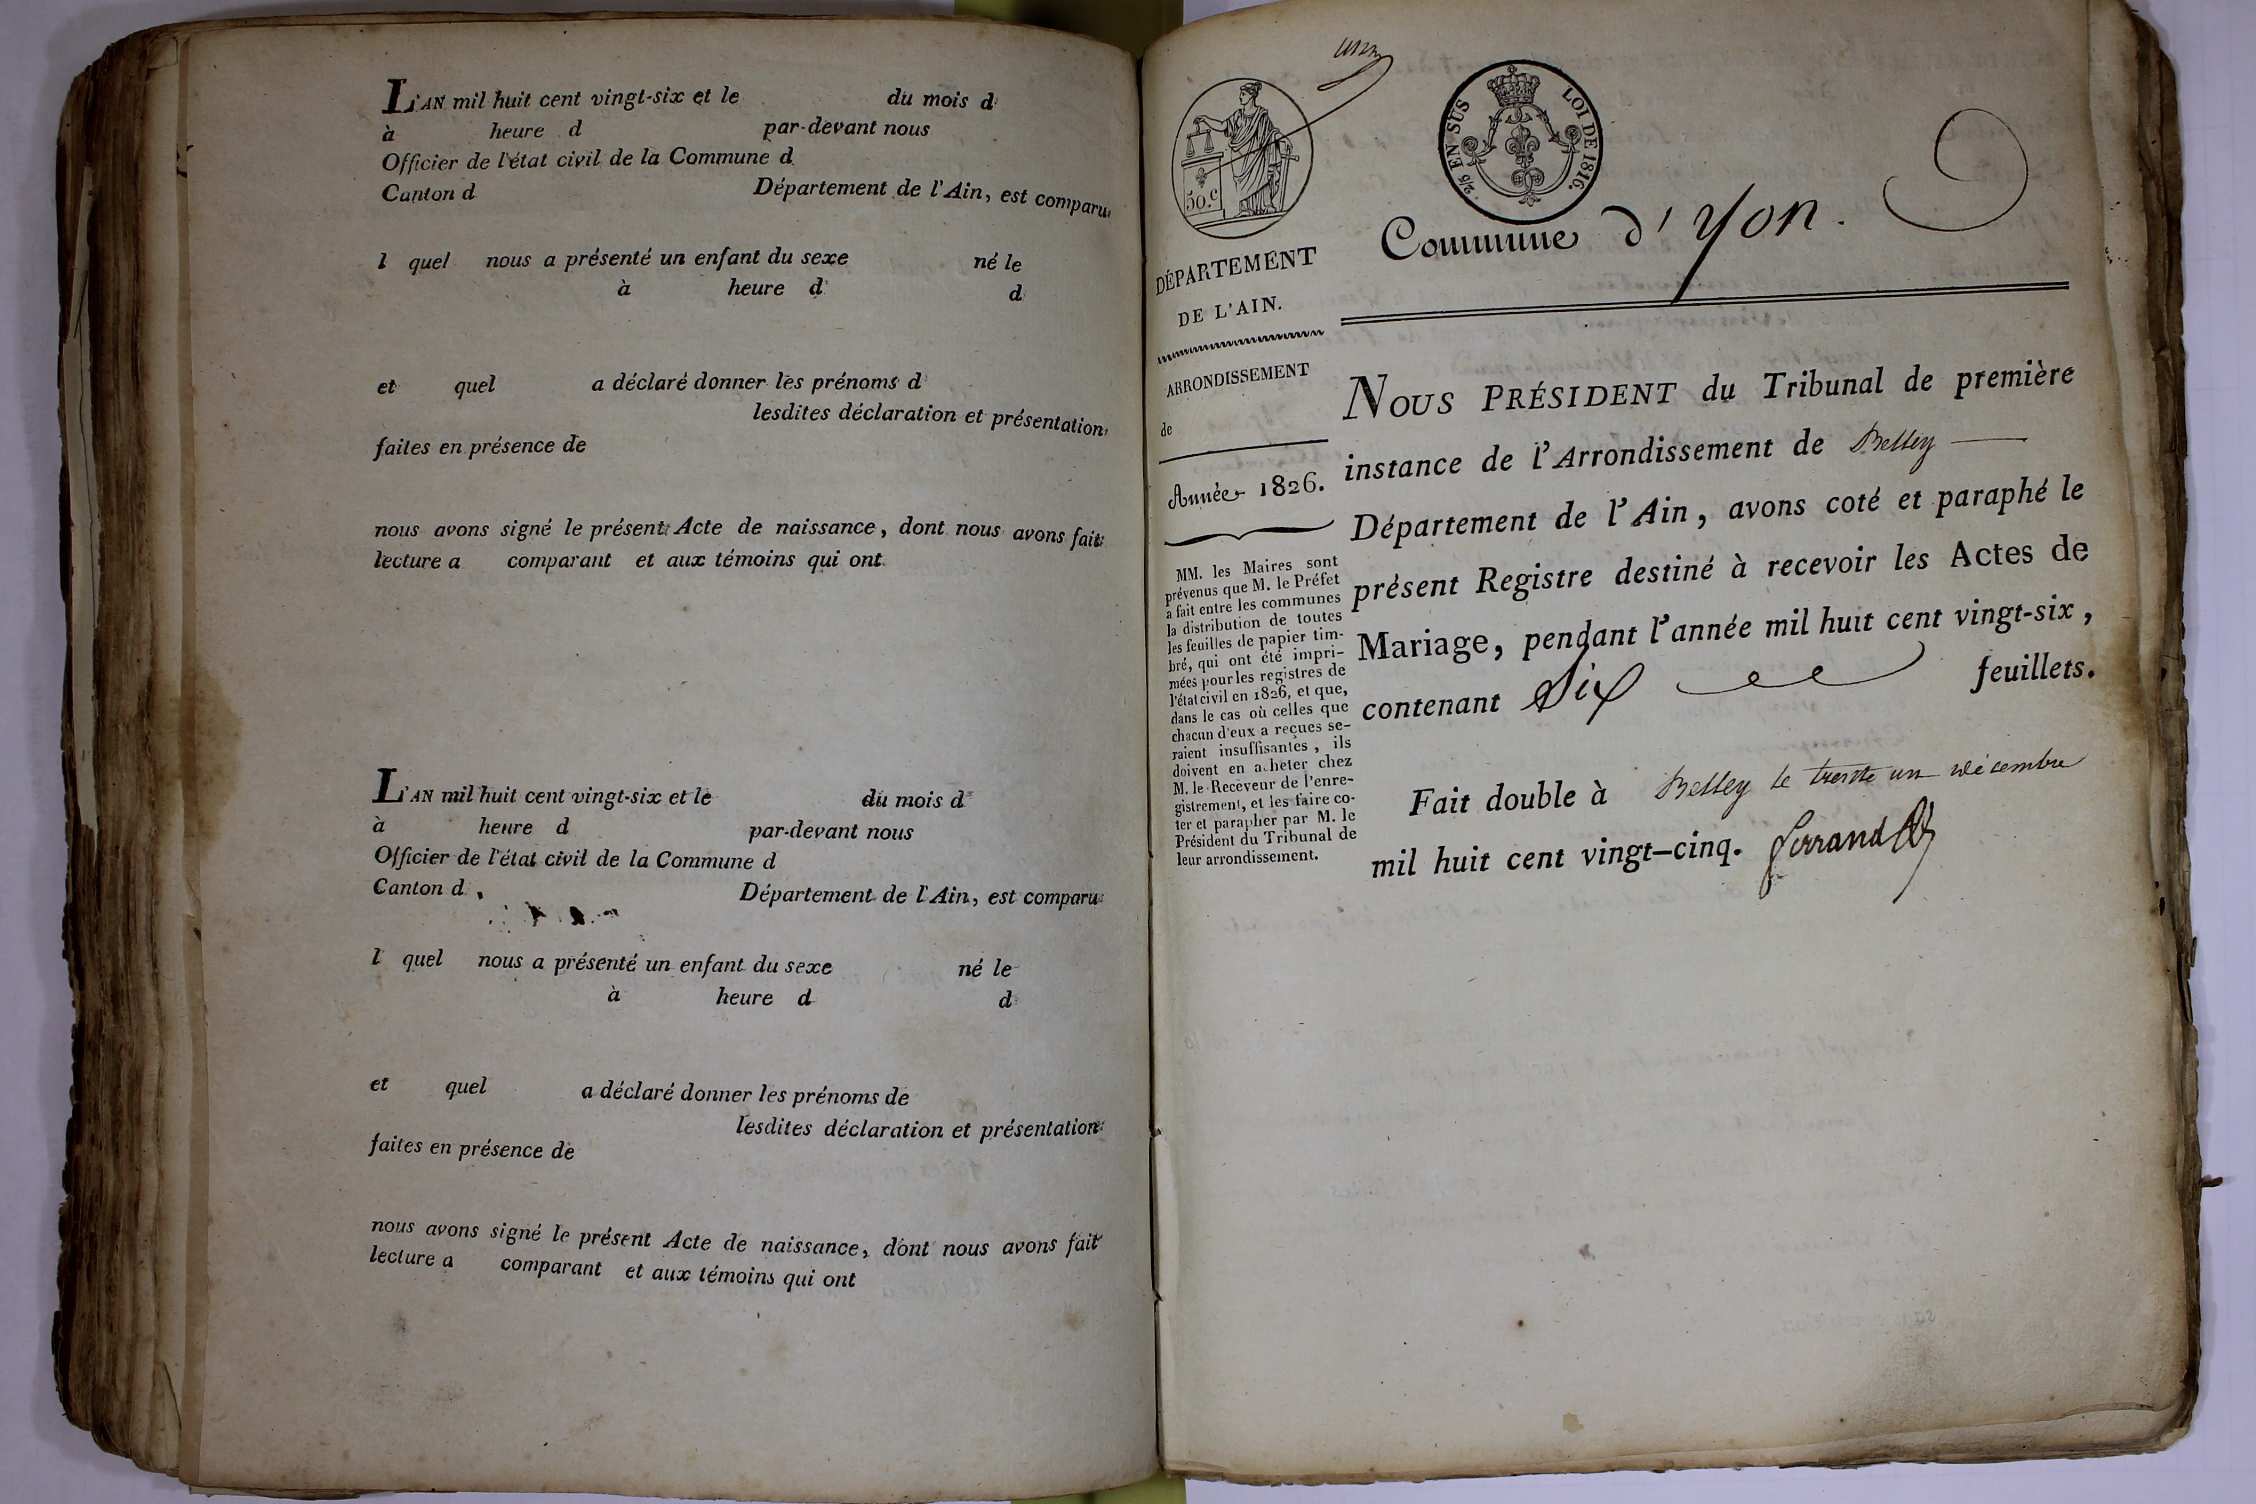 L'AN mil huit cent vingt-six et le du mois d
à heure d par-devant nous
Officier de l'état civil de la Commune d
Canton d Département de l'Ain, est comparu
l quel nous a présenté un enfant du sexe né le
à heure d d
et quel a déclaré donner les prénoms d
lesdites déclaration et présentation
faites en présence de
nous avons signé le présent Acte de naissance, dont nous avons fait
lecture a comparant et aux témoins qui ont
L'AN mil huit cent vingt-six et le du mois d
à heure d par-devant nous
Officier de l'état civil de la Commune d
Canton d Département de l'Ain, est comparu
l quel nous a présenté un enfant du sexe né le
à heure d d
et quel a déclaré donner les prénoms de
lesdites déclaration et présentation
faites en présence de
nous avons signé le présent Acte de naissance, dont nous avons fait
lecture a comparant et aux témoins qui ont
50.c
2/5 EN SUS LOI DE 1816.
Commune d'Yon.
DÉPARTEMENT
DE L'AIN.
ARRONDISSEMENT
de
Année 1826.
MM. les Maires sont
prévenus que M. le Préfet
a fait entre les communes
la distribution de toutes
les feuilles de papier tim-
bré, qui ont été impri-
mées pour les registres de
l'état civil en 1826, et que,
dans le cas où celles que
chacun d'eux a reçues se-
raient insuffisantes, ils
doivent en acheter chez
M. le Receveur de l'enre-
gistrement, et les faire co-
ter et parapher par M. le
Président du Tribunal de
leur arrondissement.
NOUS PRÉSIDENT du Tribunal de première
instance de l'Arrondissement de Belley
Département de l'Ain, avons coté et paraphé le
présent Registre destiné à recevoir les Actes de
Mariage, pendant l'année mil huit cent vingt-six,
contenant Six feuillets.
Fait double à Belley le trente un décembre
mil huit cent vingt-cinq. Ferrand